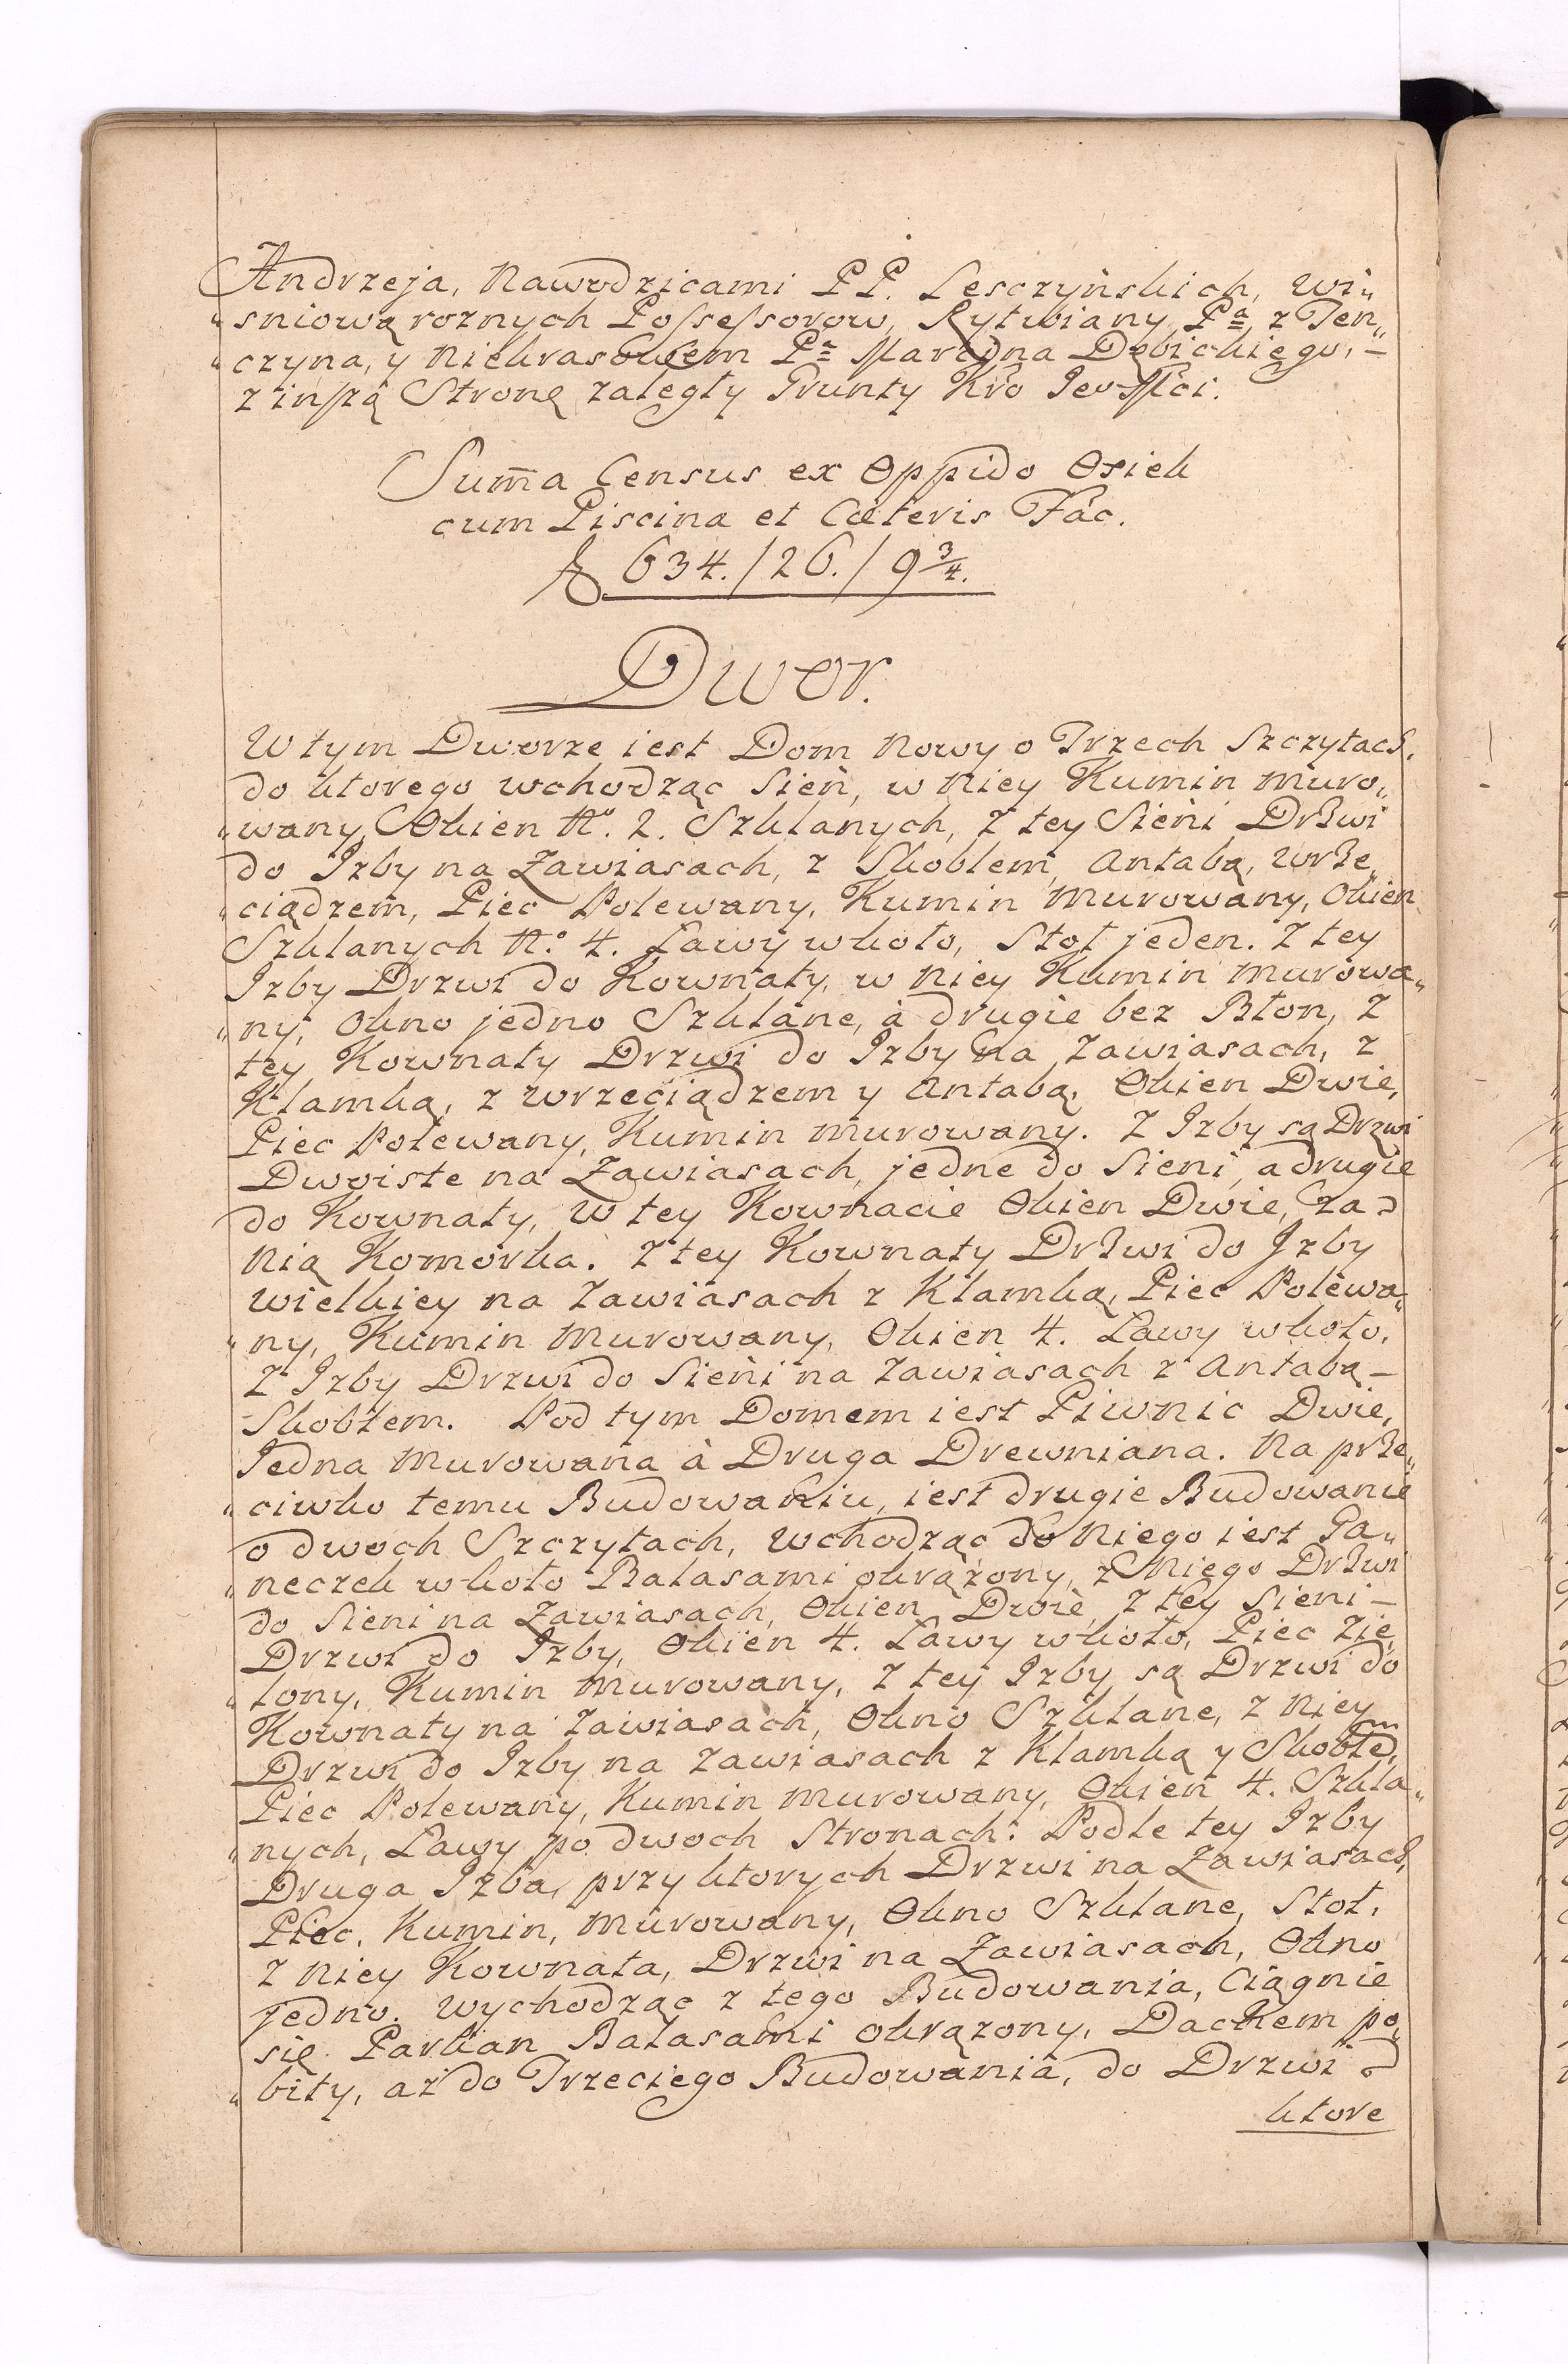 Andrzeja, Nawodzicami PP. Lesczyńskich, Wi„
„sniową roznych Possessorow, Rytwiany Pª z Ten„
„czyna, y Niekrasowem Pª Marcina Dębickiego, –
z inszą Stronę zaległy Grunty Kro Jeo Mci.
Sum̄a Census ex Oppido Osiek
cum Piscina et Cæteris Fac.
f 634./26./9 3/4.
Dwor.
W tym Dworze iest Dom Nowy o Trzech Szczytach.
do ktorego wchodząc Sień, w Niey Kumin Muro„
„wany, Okien No. 2. Szklanych, Z tey Sieni Drzwi
do Izby na Zawiasach, z Skoblem, Antabą, Wrze„
„ciądzem, Piec Polewany, Kumin Murowany, Okien
Szklanych No. 4. Ławy wkoło, Stoł jeden. Z tey
Izby Drzwi do Kownaty, w Niey Kumin Murowa„
„ny, Okno jedno Szklane, à drugie bez Błon, Z
tey Kownaty Drzwi do Izby na Zawiasach, z
Klamką, z Wrzeciądzem y Antabą, Okien Dwie,
Piec Polewany, Kumin Murowany. Z Izby są Drzwi
Dwoiste na Zawiasach, jedne do Sieni, a drugie
do Kownaty, W tey Kownacie Okien Dwie, Za
Nią Komorka. Z tey Kownaty Drzwi do Izby
wielkiey na Zawiasach z Klamką, Piec Polewa„
„ny, Kumin Murowany, Okien 4. Ławy wkoło,
Z Izby Drzwi do Sieni na Zawiasach z Antabą –
Skoblem. Pod tym Domem iest Piwnic Dwie,
Jedna Murowana à Druga Drewniana. Na prze„
„ciwko temu Budowaniu, iest drugie Budowanie
o dwoch Szczytach, Wchodząc do Niego iest Ga„
„neczek wkoło Balasami okrążony, z Niego Drzwi
do Sieni na Zawiasach, Okien Dwie, Z tey Sieni –
Drzwi do Izby, Okien 4. Ławy wkoło, Piec Zie„
„lony, Kumin Murowany, Z tey Izby są Drzwi do
Kownaty na Zawiasach, Okno Szklane, z Niey
Drzwi do Izby na Zawiasach z Klamką y Skoblem,
Piec Polewany, Kumin Murowany, Okien 4. Szkla„
„nych, Ławy po dwoch Stronach. Podle tey Izby
Druga Izba, przy ktorych Drzwi na Zawiasach,
Piec, Kumin, Murowany, Okno Szklane, Stoł,
z Niey Kownata, Drzwi na Zawiasach, Okno
jedno. Wychodząc z tego Budowania, Ciągnie
się Parkan Balasami okrązony, Dachem po„
„bity, aż do Trzeciego Budowania, do Drzwi
ktore